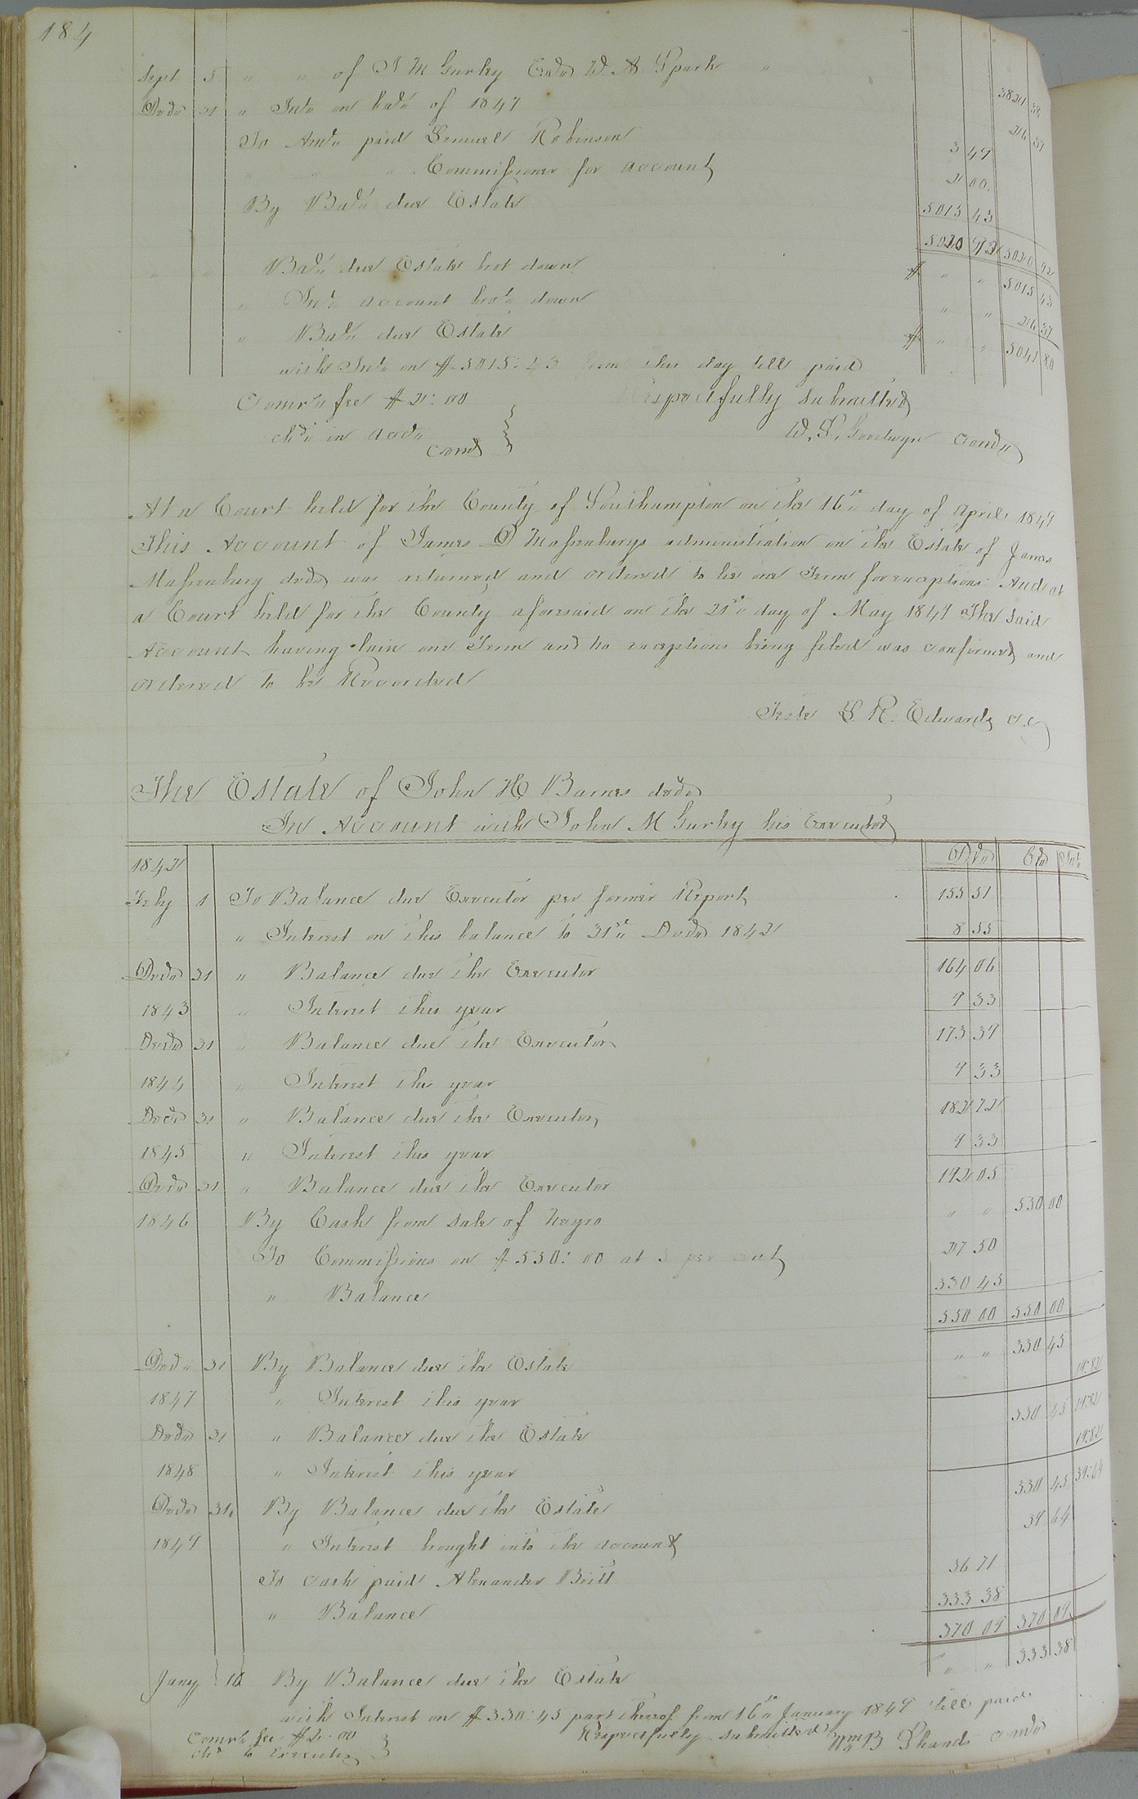 184
Sept 5 " " of J M Gurley Exor W. A. Spark "
Decr 31 " Intt on balce of 1847
To Amt paid Samuel Robinson 3 49
" " " Commissioner for account 2 00
By Balce due Estate 5015 43
5020 92 5020 92
Balce due Estate brot down $ " " 5015 43
" Intt account brot down " " 26 37
" Balce due Estate $ " " 5041 80
with Intt on $5015:43 from this day till paid
Comrs fee $2:00 Respectfully submitted
chd in acct W. S. Goodwyn Comr
Comr
At a Court held for the County of Southampton on the 16th day of April 1849
This Account of James D Massenburgs administration on the Estate of James
Massenburg decd was returned and ordered to lie one Term for exceptions And at
a Court held for the County aforesaid on the 21st day of May 1849 The said
Account having lain one Term and no exceptions being filed was confirmed and
ordered to be Recorded
Teste L R Edwards C.C
The Estate of John H Barnes decd
In Account with John M Gurley his Executor
1842 Dr Cr Intt
Feby 1 To Balance due Executor per former Report 155 51
" Interest on this balance to 31st Decr 1842 8 55
Decr 31 " Balance due the Executor 164 06
1843 " Interest this year 9 33
Decr 31 " Balance due the Executor 173 39
1844 " Interest this year 9 33
Decr 31 " Balance due the Executor 182 72
1845 " Interest this year 9 33
Decr 31 " Balance due the Executor 192 05
1846 By Cash from sale of Negro " " 550 00
To Commissions on $550:00 at 5 per cent 27 50
" Balance 330 45
550 00 550 00
Decr 31 By Balance due the Estate " " 330 45
1847 " Interest this year 19:82
Decr 31 " Balance due the Estate 330 45 19:82
1848 " Interest this year 19:82
Decr 31 By Balance due the Estate 330 45 39:64
1849 " Interest brought into the account 39 64
To cash paid Alexander Britt 36 71
" Balance 333 38
370 09 370 09
Jany 16 By Balance due the Estate " " 333 38
with Interest on $330:45 part thereof from 16th January 1849 till paid
Comrs fee $2:00 Respectfully submitted Wm B Shands Comr
chd to Executor